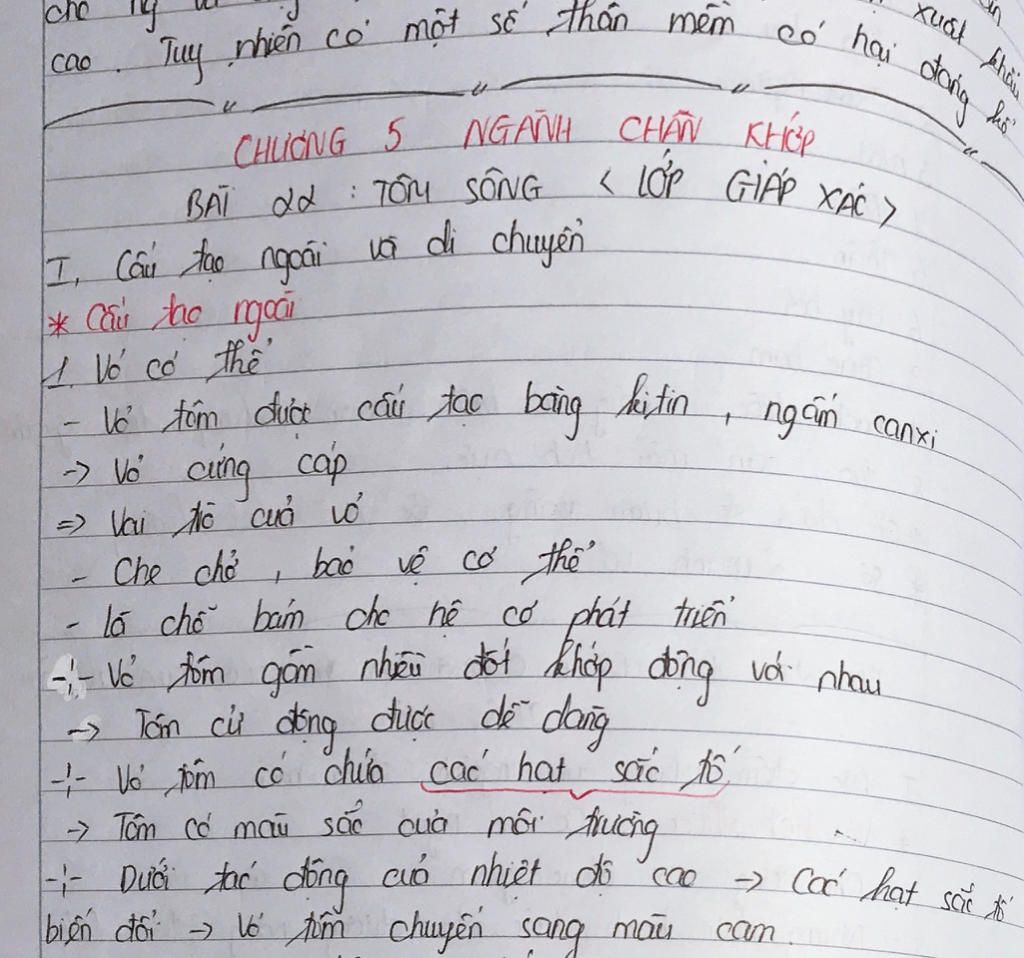 cho
cao. Tuy nhiên có một số thân mềm có hại đáng kể
xuất khẩu
CHƯƠNG 5 NGÀNH CHÂN KHỚP
BÀI 22 : TÔM SÔNG < LỚP GIÁP XÁC >
I, Cấu tạo ngoài và di chuyển
* Cấu tạo ngoài
1. Vỏ cơ thể
- Vỏ tôm được cấu tạo bằng kitin, ngấm canxi
-> Vỏ cứng cáp
=> Vai trò của vỏ
- Che chở, bảo vệ cơ thể
- là chỗ bám cho hệ cơ phát triển
-:- Vỏ tôm gồm nhiều đốt khớp động với nhau
-> Tôm cử động được dễ dàng
-:- Vỏ tôm có chứa các hạt sắc tố
-> Tôm có màu sắc của môi trường
-:- Dưới tác động của nhiệt độ cao -> Các hạt sắc tố
biến đổi -> Vỏ tôm chuyển sang màu cam.